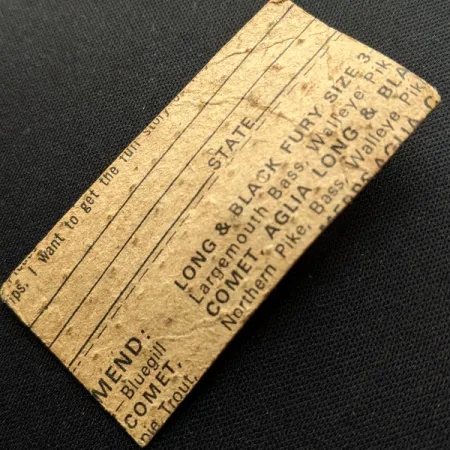 ips. I want to get the full story
STATE
MEND: LONG & BLACK FURY SIZE 3
— Bluegill Largemouth Bass, Walleye Pik
COMET, COMET, AGLIA LONG & BLA
pie Trout, Northern Pike, Bass, Walleye Pik
AGLIA